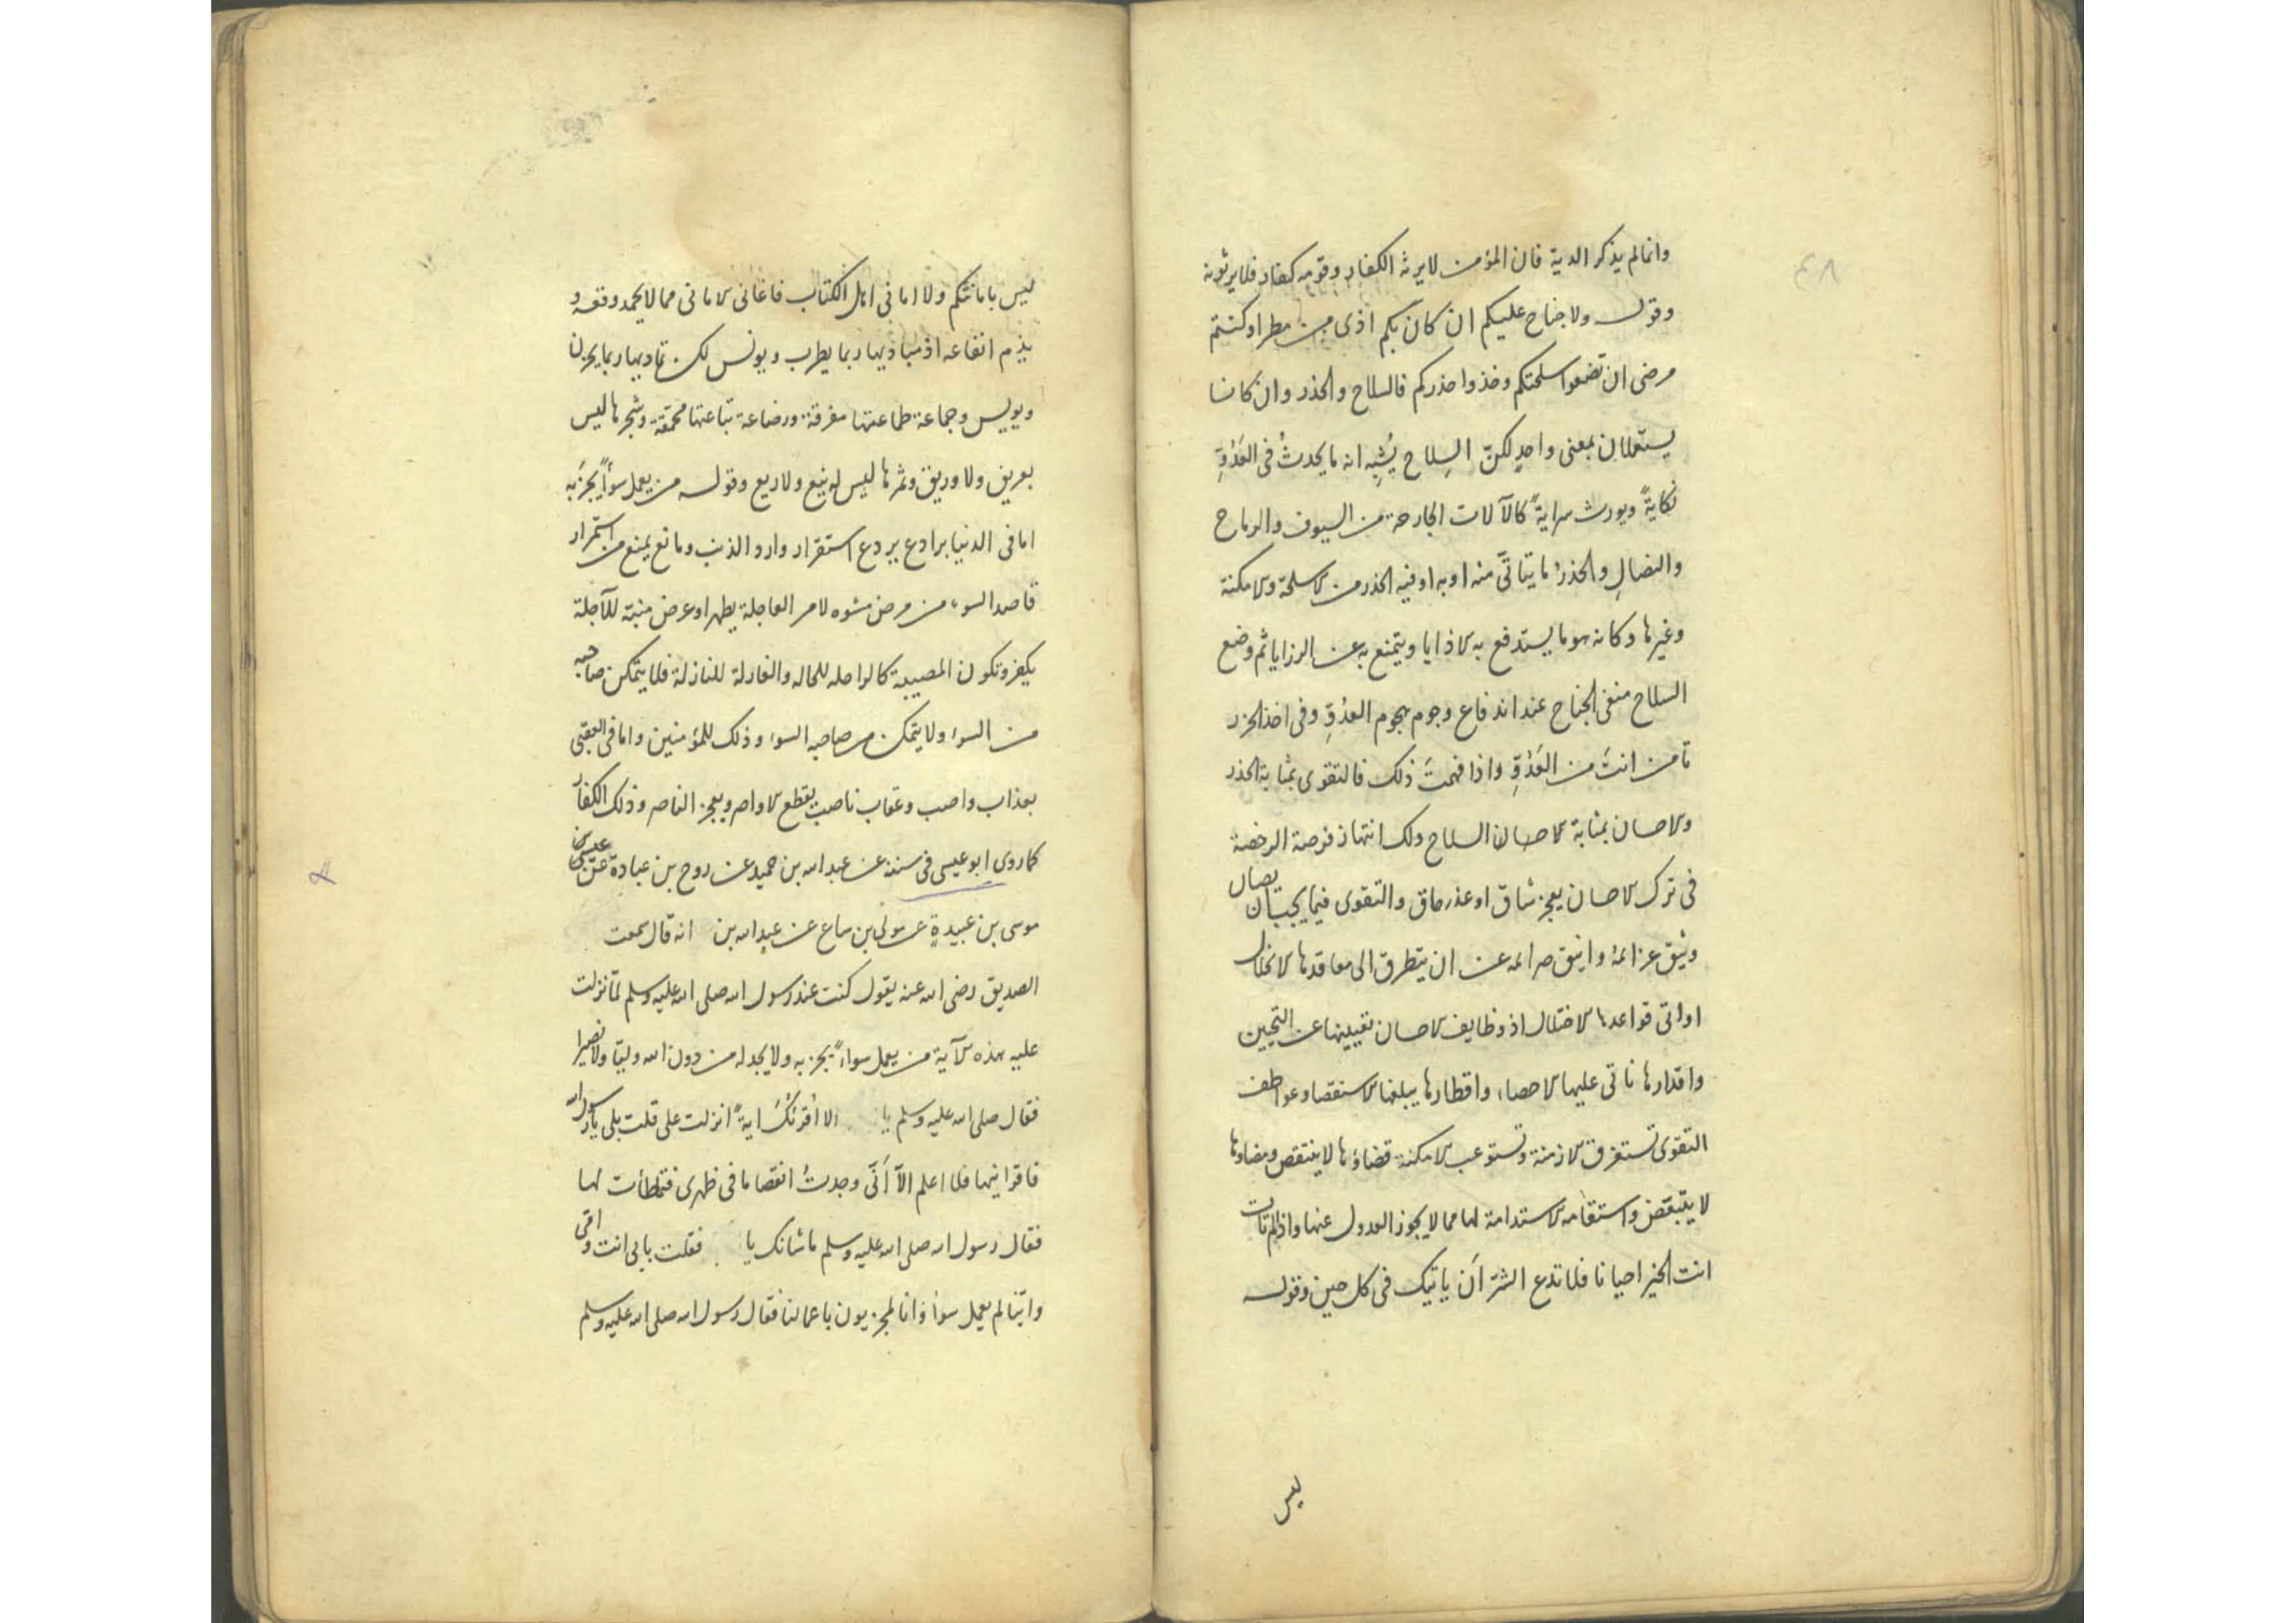 ٤٨
وانما لم يذكر الدية فان المؤمن لا يرثه الكفار وقومه كفار فلا يرثونه
وقوله ولا جناح عليكم ان كان بكم اذى من مطر او كنتم
مرضى ان تضعوا اسلحتكم وخذوا حذركم فالسلاح والحذر وان كانا
يستعملان بمعنى واحدٍ لكنّ السِلاح يُشبِه انه ما يحدثُ فى العَدُوِّ
نكايةً ويورث سرايةً كالآلات الجارحة من السيوف والرماح
والنصالِ والحذرُ ما يتاتّى منه او به او فيه الحذر من الاسلحة والامكنة
وغيرها وكانه هو ما يستدفع به الاذايا ويتمنع به عن الرزايا ثم وضع
السلاح منفى الجناح عند اندفاع وجوم هجوم العدُوِّ وفى اخذ الحذر
تأمن انتَ من العَدُوِّ واذا فهمتَ ذلك فالتقوى بمثابة الحذر
والاحسان بمثابة الاحسان السلاح ولك انتهاز فرصة الرخصة
فى ترك الاحسان بعجز شاق او عذر ماق والتقوى فيما يجب ان يصان
وثيق عزائمه وانيق صرائمه عن ان يتطرق الى معاقدها الانحلال
او اتى قواعدها الاختلال اذ وظايف الاحسان تغيبها عن التحيين
واقدارها تاتى عليها الاحصاء واقطارها يبلغها الاستقصا وعواطف
التقوى تستغرق الازمنة وتستوعب الامكنة قضاؤها لا ينتقص ومضاوها
لا يتبعّض واستقامة الاستدامة لها مما لا يجوز العدول عنها واذا لم تات
انت الخير احيانا فلا تدع الشرّ اَن ياتيك فى كل حين وقوله
ليس
ليس بامانيّكم ولا امانى اهل الكتاب فاغانى الامانى مما لا يحمد وقعه و
يذم انفاعه اذ مباديها ربما يطرب ويونس لكن تماديها ربما يحزن
ويوئيس وجماعة طماعتها مفرقة ورضاعة تباعتها محمّقة وشجرها ليس
بعريق ولا وريق وثمرها ليس له ينع ولا ريع وقوله من يعمل سوأً يجزَ به
اما فى الدنيا برادع يردع استقرار وارد الذنب ومانع يمنع من استمرار
قاصد السوء من مرض مشوه لامر العاجلة يطهر او عرض منبّة للآجلة
يكفر وتكون المصيبة كالراحلة للحالة والغارلة للنازلة فلا يتمكن صاحبه
من السوء ولا يتمكن من صاحبه السوء وذلك للمؤمنين واما فى العقبى
بعذاب واصب وعقاب ناصب يقطع الاواصر ويعجز الناصر وذلك الكفار
كما روى ابو عيسى فى سننه عن عبد الله بن حميد عن روح بن عبادة عن عيسى
موسى بن عبيدةٍ عن مولى بن ساع عن عبد الله بن انه قال سمعت
الصديق رضى الله عنه يقول كنت عند رسول الله صلى الله عليه وسلم لمّا نزلت
عليه هذه الآية من يعمل سواءً يجز به ولا يجد له من دون الله وليّا ولا نصيرا
فقال صلى الله عليه وسلم يا الا اُقرئكُ ايةً انزلت على قلت بلى يا رسول الله
فاقرانيها فلا اعلم الّا اَنّى وجدتُ انفصاما فى ظهرى فتمطأت لها
فقال رسول الله صلى الله عليه وسلم ما شانك يا فقلت بابى انت وامّى
وايّنا لم يعمل سوأ وانا لمجزيون باعمالنا فقال رسول الله صلى الله عليه وسلم